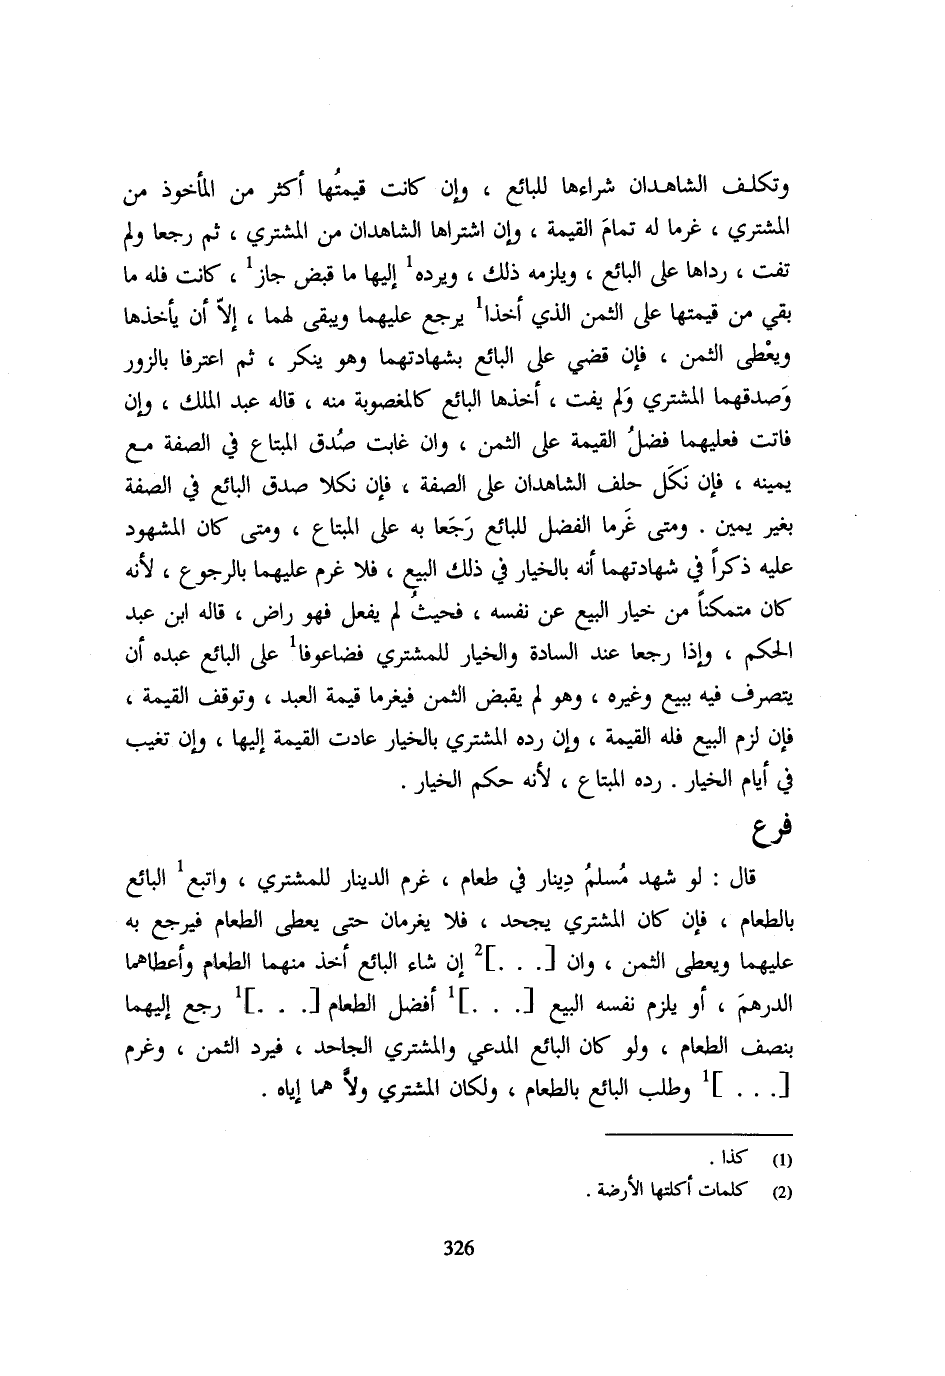 وتكلف الشاهدان شراءها للبائع ، وإن كانت قيمتُها أكثر من المأخوذ من
المشتري ، غرما له تمامَ القيمة ، وإن اشتراها الشاهدان من المشتري ، ثم رجعا ولم
تفت ، رداها على البائع ، ويلزمه ذلك ، ويرده1 إليها ما قبض جاز1 ، كانت فله ما
بقي من قيمتها على الثمن الذي أخذا1 يرجع عليهما ويبقى لهما ، إلاّ أن يأخذها
ويعْطى الثمن ، فإن قضي على البائع بشهادتهما وهو ينكر ، ثم اعترفا بالزور
وَصدقهما المشتري وَلم يفت ، أخذها البائع كالمغصوبة منه ، قاله عبد الملك ، وإن
فاتت فعليهما فضلُ القيمة على الثمن ، وان غابت صُدق المبتاع في الصفة مع
يمينه ، فإن نَكَل حلف الشاهدان على الصفة ، فإن نكلا صدق البائع في الصفة
بغير يمين . ومتى غَرما الفضل للبائع رَجَعا به على المبتاع ، ومتى كان المشهود
عليه ذكراً في شهادتهما أنه بالخيار في ذلك البيع ، فلا غرم عليهما بالرجوع ، لأنه
كان متمكناً من خيار البيع عن نفسه ، فحيثُ لم يفعل فهو راض ، قاله ابن عبد
الحكم ، وإذا رجعا عند السادة والخيار للمشتري فضاعوفا1 على البائع عبده أن
يتصرف فيه ببيع وغيره ، وهو لم يقبض الثمن فيغرما قيمة العبد ، وتوقف القيمة ،
فإن لزم البيع فله القيمة ، وإن رده المشتري بالخيار عادت القيمة إليها ، وإن تغيب
في أيام الخيار . رده المبتاع ، لأنه حكم الخيار .
فرع
قال : لو شهد مُسلمُ دِينار في طعام ، غرم الدينار للمشتري ، واتبع1 البائع
بالطعام ، فإن كان المشتري يجحد ، فلا يغرمان حتى يعطى الطعام فيرجع به
عليهما ويعطى الثمن ، وان [. . .]2 إن شاء البائع أخذ منهما الطعام وأعطاهما
الدرهمَ ، أو يلزم نفسه البيع [. . .]1 أفضل الطعام [. . .]1 رجع إليهما
بنصف الطعام ، ولو كان البائع المدعي والمشتري الجاحد ، فيرد الثمن ، وغرم
[. . . ]1 وطلب البائع بالطعام ، ولكان المشتري ولاًّ هما إياه .
(1) كذا .
(2) كلمات أكلتها الأرضة .
326